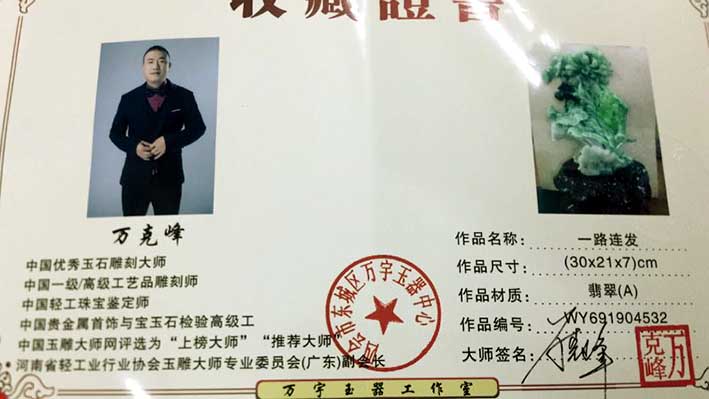 收藏證書
万克峰
中国优秀玉石雕刻大师
中国一级/高级工艺品雕刻师
中国轻工珠宝鉴定师
中国贵金属首饰与宝玉石检验高级工
中国玉雕大师网评选为“上榜大师”“推荐大师”
河南省轻工业行业协会玉雕大师专业委员会(广东)副会长
四会市东城区万宇玉器中心
作品名称: 一路连发
作品尺寸: (30x21x7)cm
作品材质: 翡翠(A)
作品编号: WY691904532
大师签名:
万克峰
万宇玉器工作室